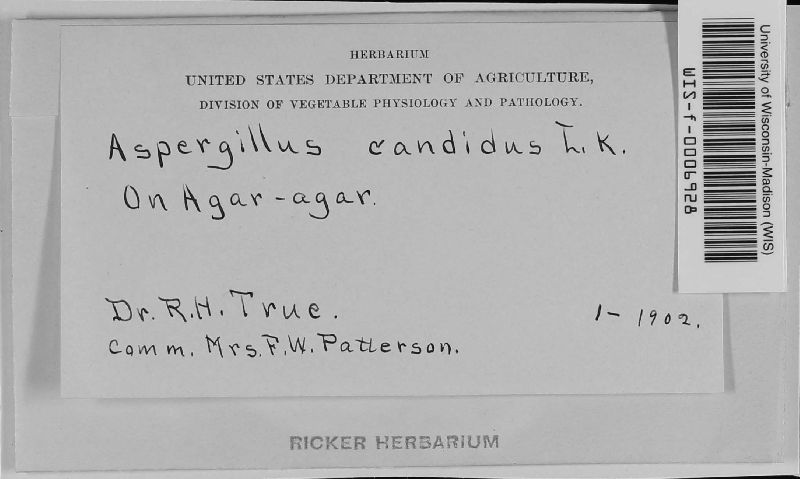 HERBARIUM
UNITED STATES DEPARTMENT OF AGRICULTURE,
DIVISION OF VEGETABLE PHYSIOLOGY AND PATHOLOGY.
Aspergillus candidus L.K.
On Agar-agar.
Dr. R.H. True.
1- 1902.
Comm. Mrs. F.W. Patterson.
RICKER HERBARIUM
University of Wisconsin-Madison (WIS)
WIS-f-0006928